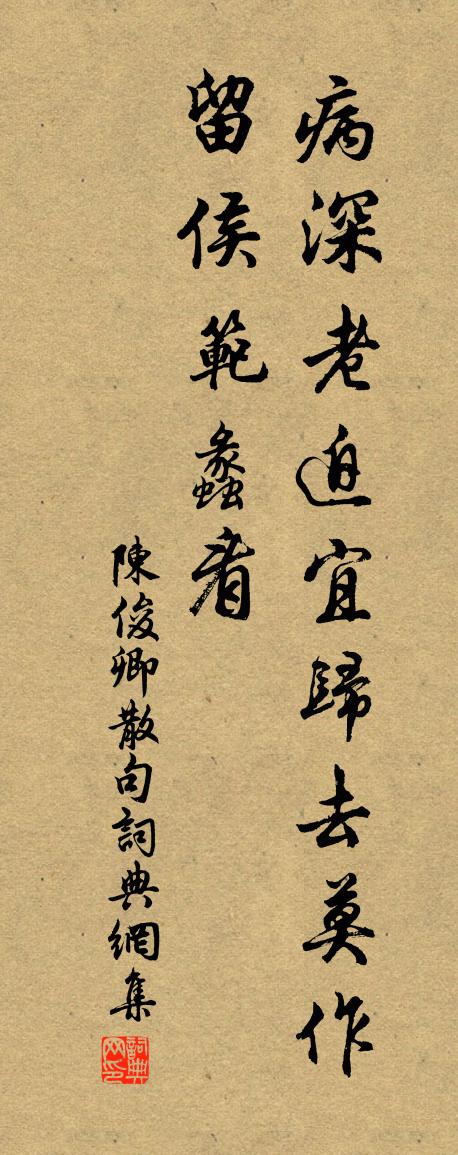 病深老迫宜歸去莫作
留侯範蠡看
陳俊卿散句詞典網集
詞典网印